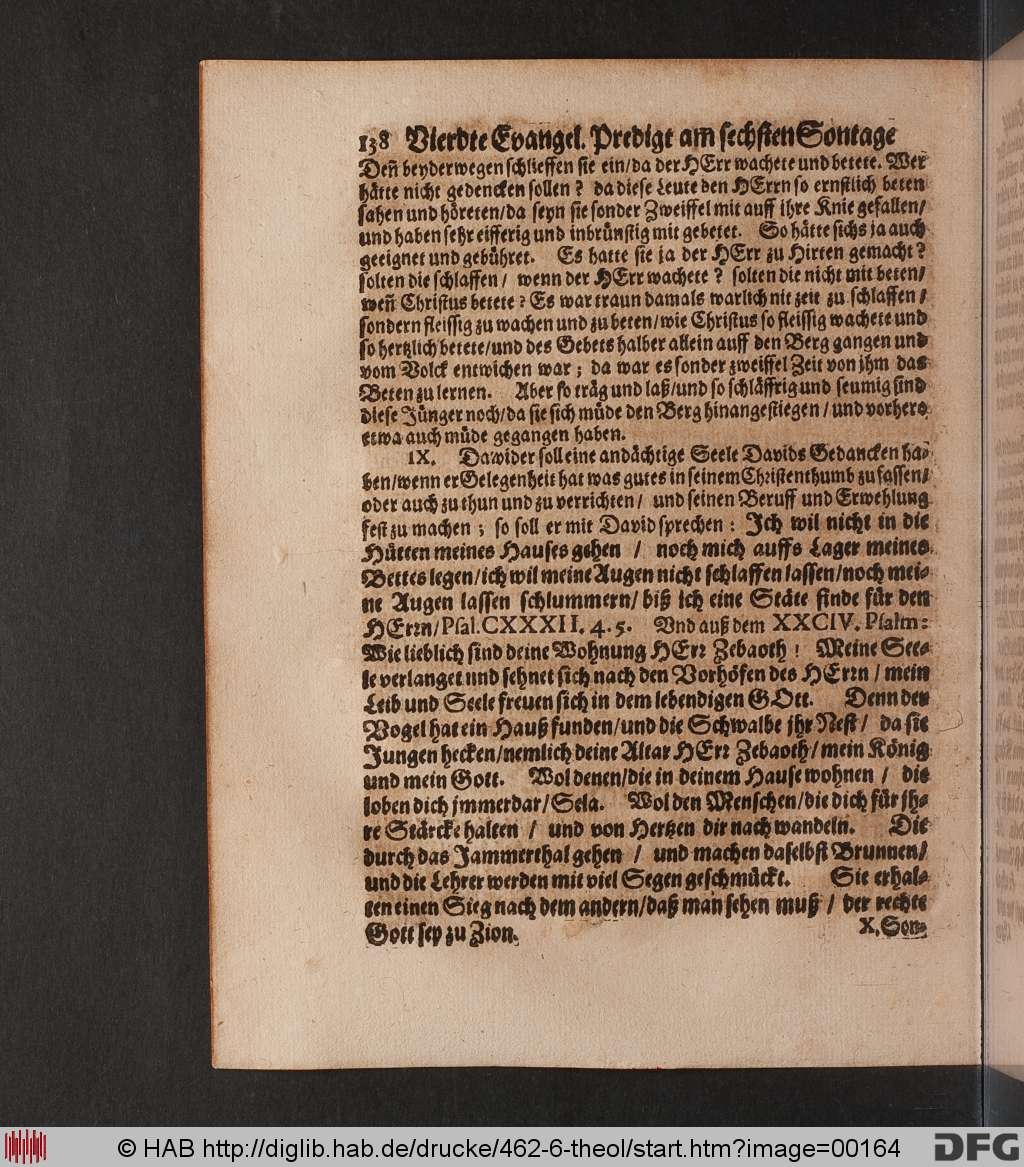 138 Vierdte Evangel. Predigt am sechsten Sontage
Deñ beyderwegen schlieffen sie ein/da der HErr wachete und betete. Wer
hätte nicht gedencken sollen? da diese Leute den HErrn so ernstlich beten
sahen und höreten/da seyn sie sonder Zweiffel mit auff ihre Knie gefallen/
und haben sehr eifferig und inbrünstig mit gebetet. So hätte sichs ja auch
geeignet und gebühret. Es hatte sie ja der HErr zu Hirten gemacht?
solten die schlaffen/ wenn der HErr wachete? solten die nicht mit beten/
weñ Christus betete? Es war traun damals warlich nit zeit zu schlaffen/
sondern fleissig zu wachen und zu beten/wie Christus so fleissig wachete und
so hertzlich betete/und des Gebets halber allein auff den Berg gangen und
vom Volck entwichen war; da war es sonder zweiffel Zeit von jhm das
Beten zu lernen. Aber so träg und laß/und so schläffrig und seumig sind
diese Jünger noch/da sie sich müde den Berg hinangestiegen/und vorhero
etwa auch müde gegangen haben.
IX. Dawider soll eine andächtige Seele Davids Gedancken ha-
ben/wenn er Gelegenheit hat was gutes in seinem Christenthumb zu fassen/
oder auch zu thun und zu verrichten/ und seinen Beruff und Erwehlung
fest zu machen; so soll er mit David sprechen: Jch wil nicht in die
Hütten meines Hauses gehen/ noch mich auffs Lager meines
Bettes legen/ich wil meine Augen nicht schlaffen lassen/noch mei-
ne Augen lassen schlummern/biß ich eine Stäte finde für den
HErrn/Psal. CXXXII. 4. 5. Vnd auß dem XXCIV. Psalm:
Wie lieblich sind deine Wohnung HErr Zebaoth! Meine See-
le verlanget und sehnet sich nach den Vorhöfen des HErrn/mein
Leib und Seele freuen sich in dem lebendigen GOtt. Denn der
Vogel hat ein Hauß funden/und die Schwalbe jhr Nest/ da sie
Jungen hecken/nemlich deine Altar HErr Zebaoth/mein König
und mein Gott. Wol denen/die in deinem Hause wohnen/ die
loben dich jmmerdar/Sela. Wol den Menschen/die dich für jh-
re Stärcke halten/ und von Hertzen dir nach wandeln. Die
durch das Jammerthal gehen/ und machen daselbst Brunnen/
und die Lehrer werden mit viel Segen geschmückt. Sie erhal-
ten einen Sieg nach dem andern/daß man sehen muß/ der rechte
Gott sey zu Zion.
X. Son-
© HAB http://diglib.hab.de/drucke/462-6-theol/start.htm?image=00164
DFG